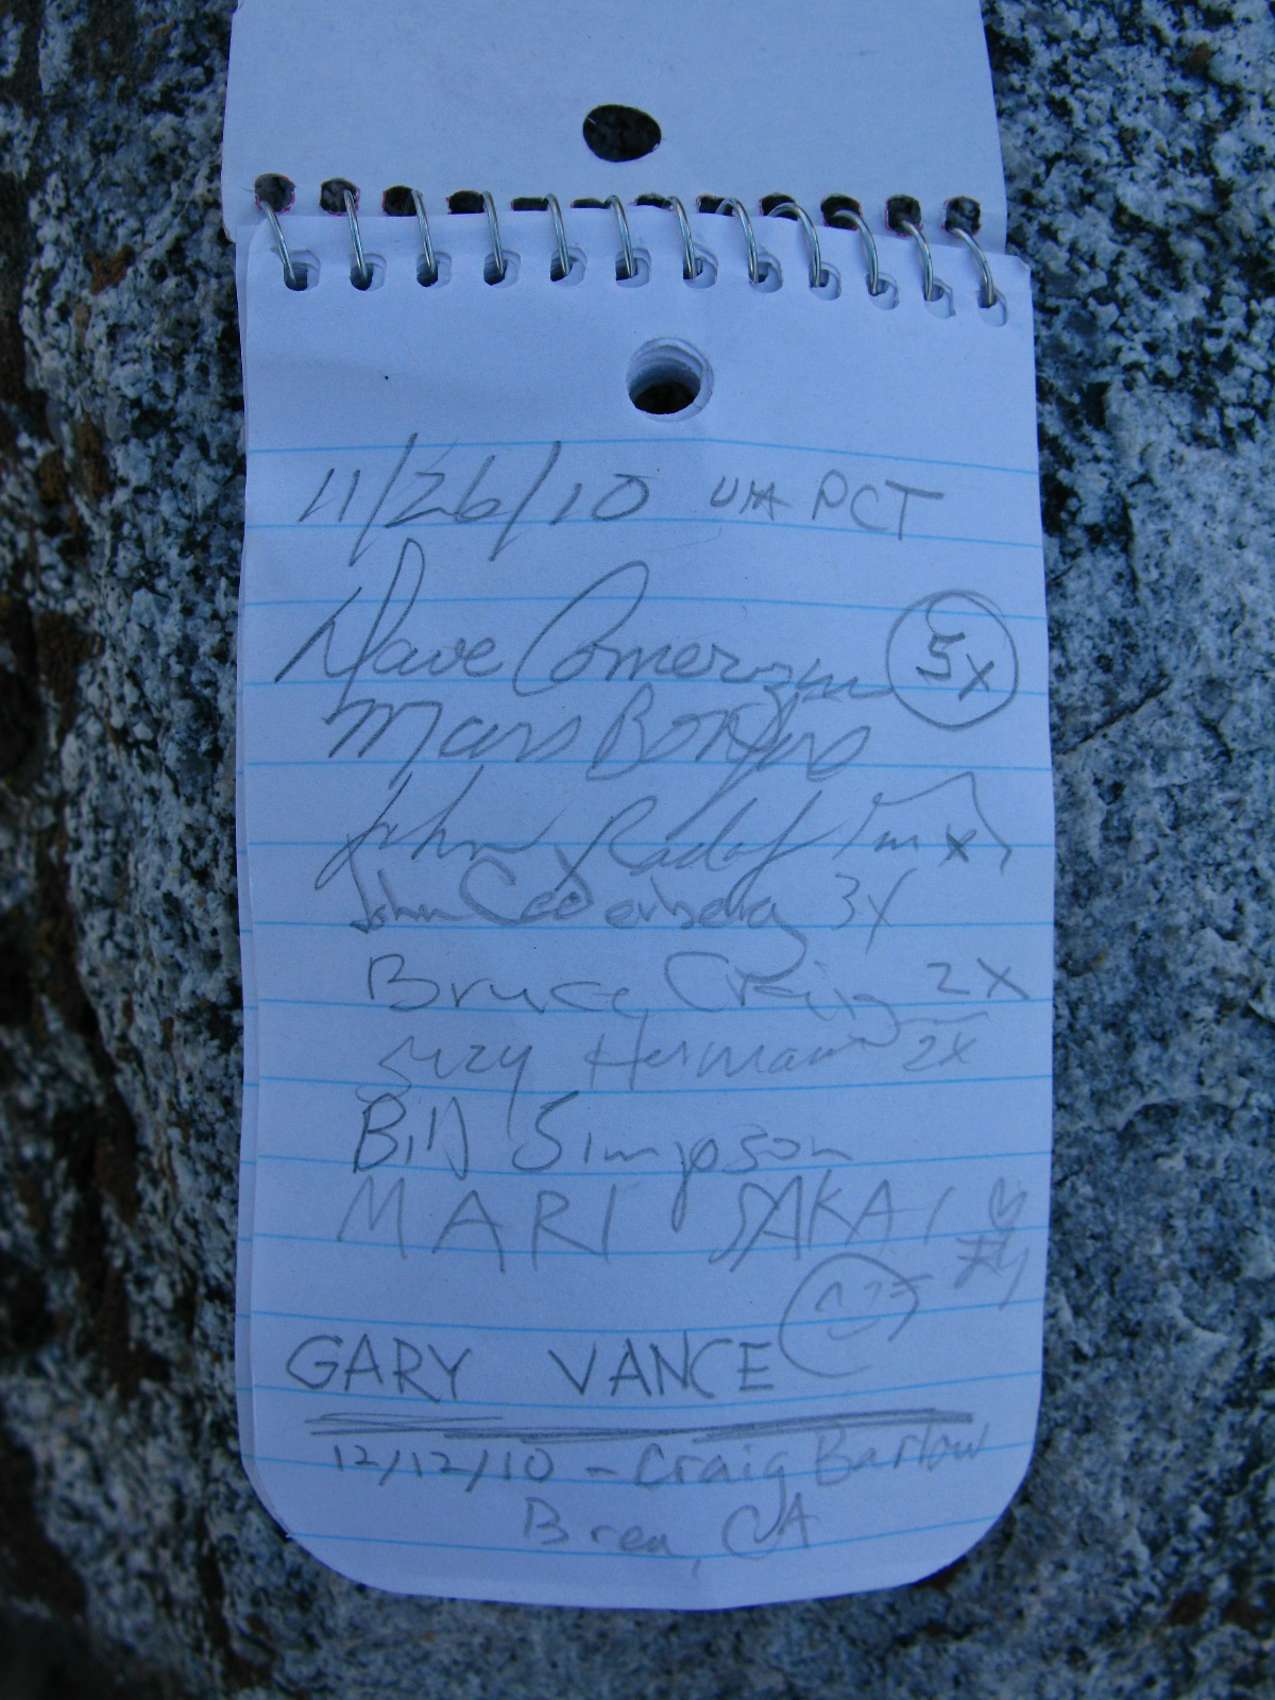 11/26/10 VIA PCT
Dave Comerzan 5x
Mars Bonfire
John Radaf
John Cederberg 3X
Bruce Craig 2X
Suzy Hermann 2X
Bill Simpson
MARI SAKAI
#4
GARY VANCE
12/12/10 - Craig Barlow
Brea, CA